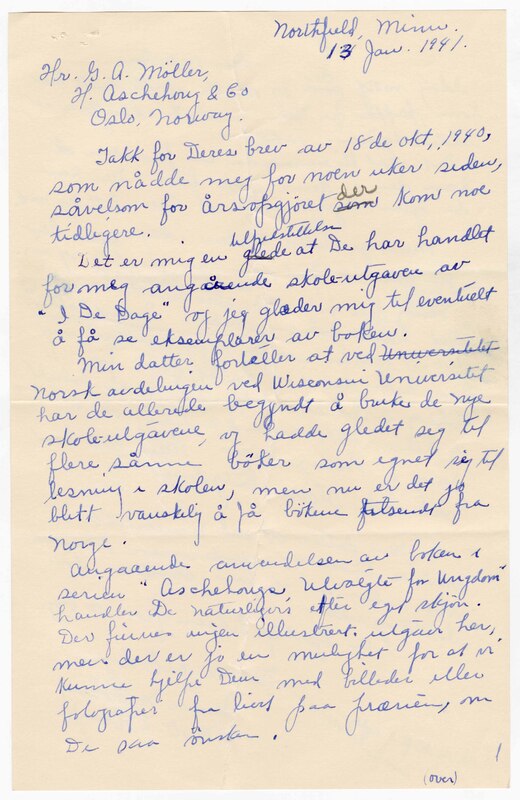 Northfield, Minn.
13 Jan. 1941.
Hr. G. A. Möller,
H. Aschehoug & Co
Oslo, Norway.
Takk for Deres brev av 18 de okt, 1940,
som nådde meg for noen uker siden,
såvelsom for årsopgjöret som der kom noe
tidligere.
Det er mig en glede tilfredstillelse at De har handlet
for meg angående skole-utgaven av
"I De Dage" og jeg glæder mig til eventuelt
å få se eksemplarer av boken.
Min datter fortæller at ved Universitetet
Norsk avdelingen ved Wisconsin Universitet
har de allerede begyndt å bruke de nye
skole-utgavene, og hadde gledet seg til
flere sånne böker som egnet sig til
lesning i skolen, men nu er det jo
blitt vanskelig å få bökene tilsendt fra
Norge.
Angaaende anvendelsen av boken i
serien "Aschehougs Utvalgte for Ungdom"
handler De naturligvis efter eget skjön.
Der finnes ingen illustrert utgave her,
men der er jo en mulighet for at vi
kunne hjelpe Dem med billeder eller
fotografier fra livet paa prærien, om
De saa önsker.
1
(over)